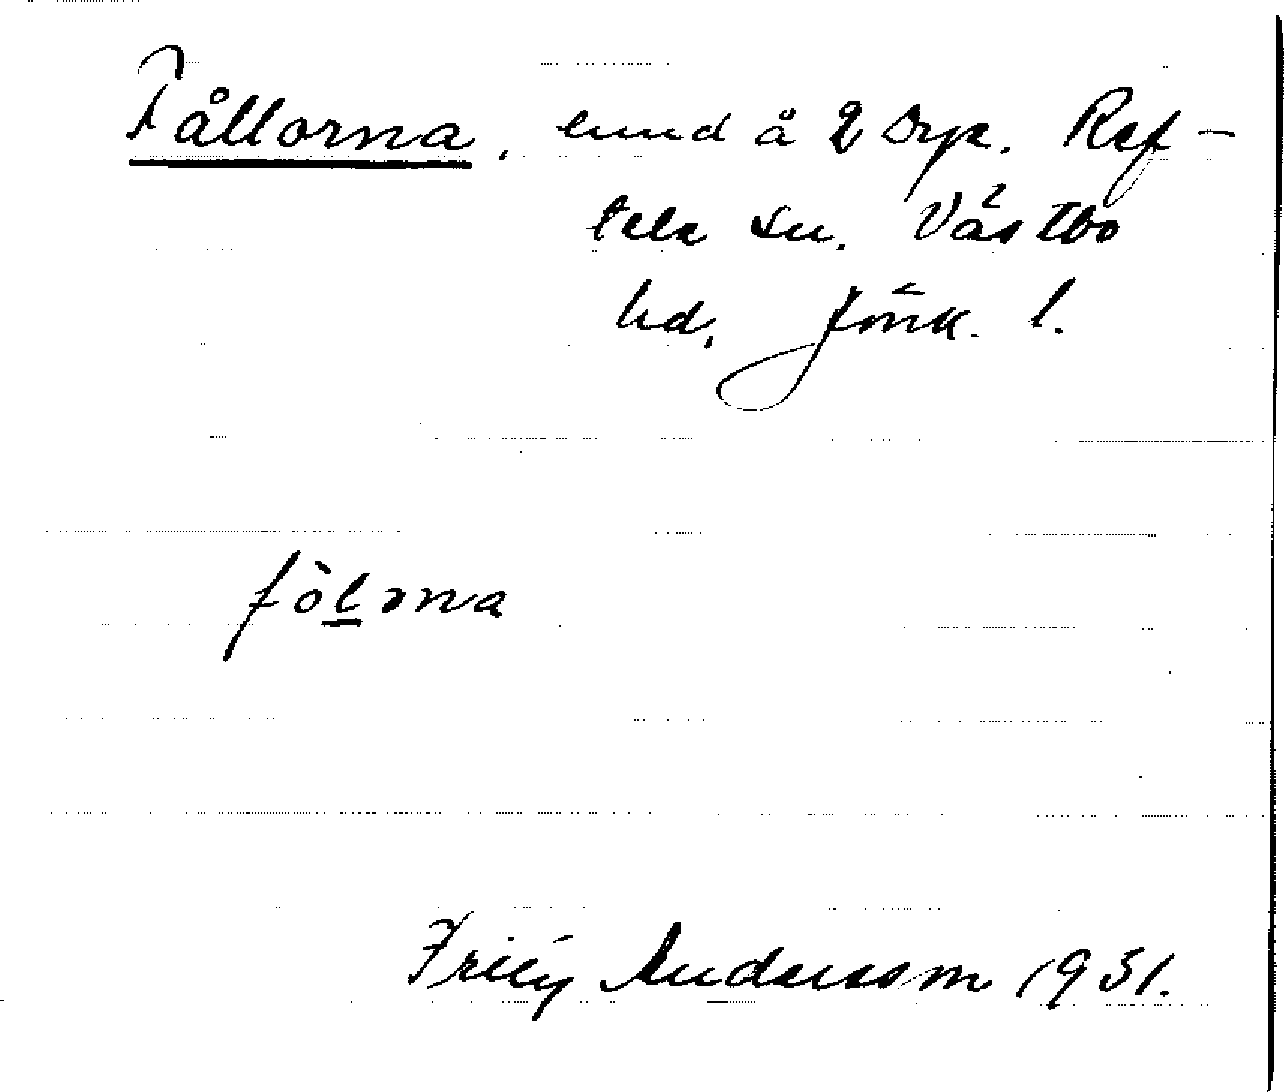 Fållorna, lund å 2 Dyr. Ref-
tele sn. Västbo
hd, Jönk. l.
fòl̲orna
Frity Andersson 1931.